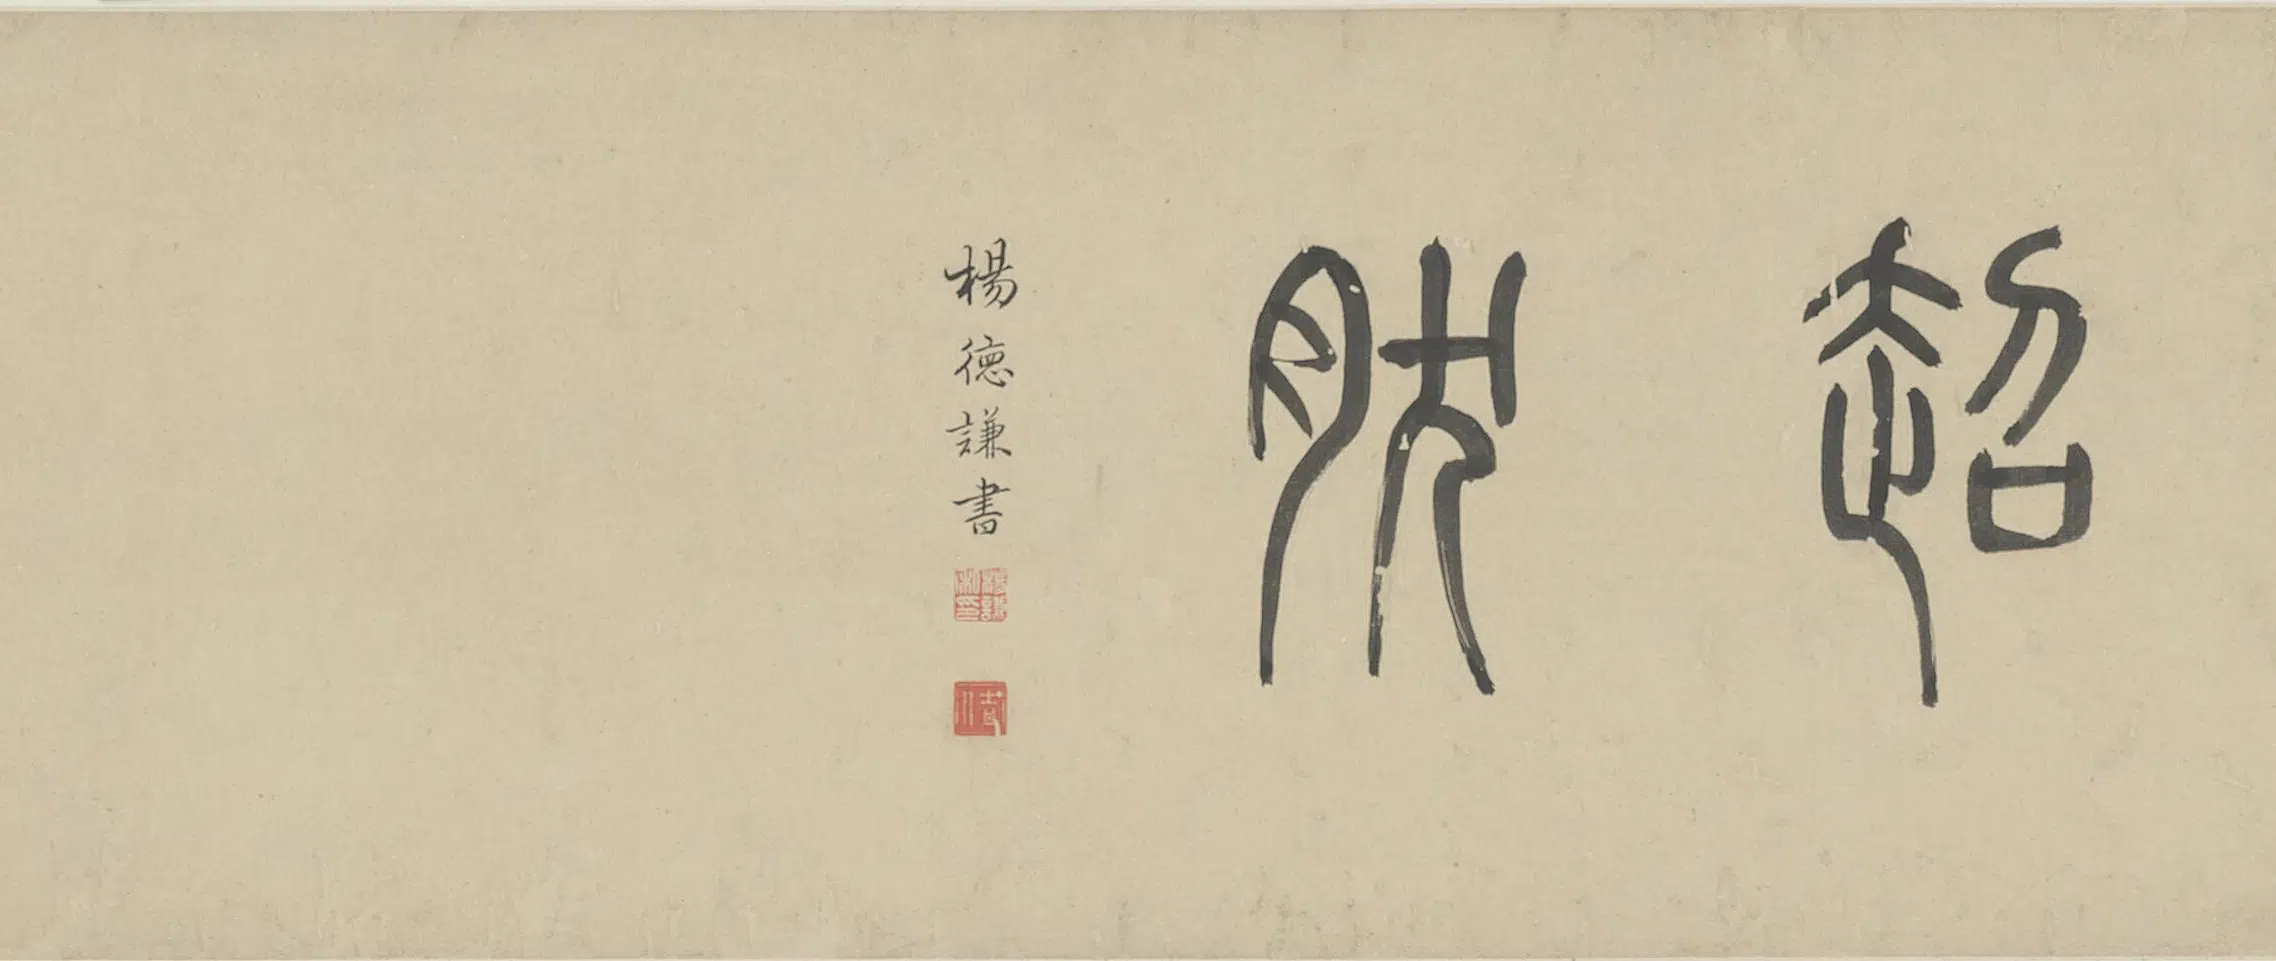 超肰
楊德謙書